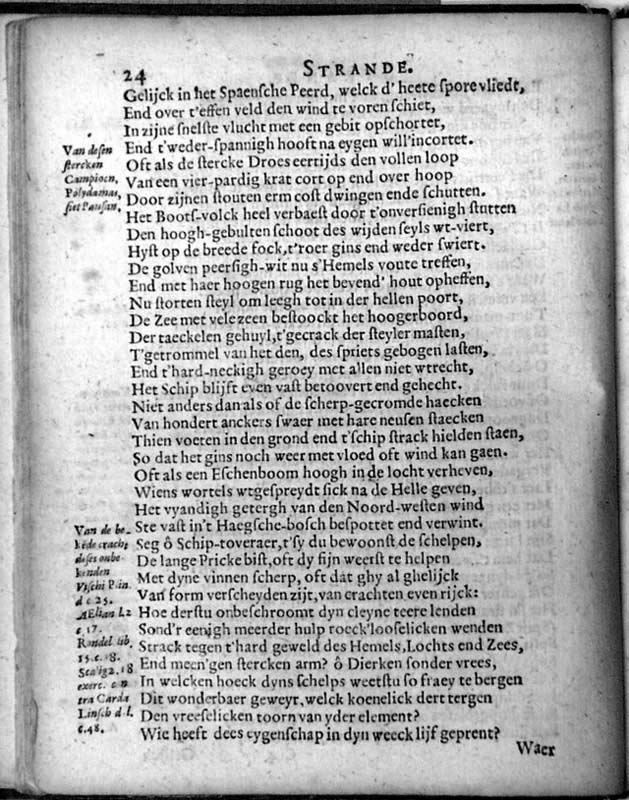 24 STRANDE.
Gelijck in het Spaensche Peerd, welck d'heete spore vliedt,
End over t'effen veld den wind te voren schiet,
In zijne snelste vlucht met een gebit opschorter,
End t'weder-spannigh hooft na eygen will'incortet.
Oft als de stercke Droes eertijds den vollen loop
Van een vier-pardig krat cort op end over hoop
Door zijnen stouten erm cost dwingen ende schutten.
Het Boots-volck heel verbaest door t'onversienigh stutten
Den hoogh-gebulten schoot des wijden seyls wt-viert,
Hyst op de breede fock, t'roer gins end weder swiert.
De golven peersigh-wit nu s'Hemels voute treffen,
End met haer hoogen rug het bevend' hout opheffen,
Nu storten steyl om leegh tot in der hellen poort,
De Zee met vele zeen bestoockt het hooger boord,
Der taeckelen gehuyl, t'gecrack der steyler masten,
T'getrommel van het den, des spriets gebogen lasten,
End t'hard-neckigh geroey met allen niet wtrecht,
Het Schip blijft even vast betoovert end gehecht.
Niet anders dan als of de scherp-gecromde haecken
Van hondert anckers swaer met hare neusen staecken
Thien voeten in den grond end t'schip strack hielden staen,
So dat het gins noch weer met vloed oft wind kan gaen.
Oft als een Eschenboom hoogh in de locht verheven,
Wiens wortels wtgespreydt sick na de Helle geven,
Het vyandigh getergh van den Noord-westen wind
Ste vast in't Haegsche-bosch bespottet end verwint.
Seg ô Schip-toveraer, t'sy du bewoonst de schelpen,
De lange Pricke bist, oft dy sijn weerst te helpen
Met dyne vinnen scherp, oft dat ghy al ghelijck
Van form verscheyden zijt, van crachten even rijck:
Hoe derstu onbeschroomt dyn cleyne teere lenden
Sond'r eenigh meerder hulp roeck'looselicken wenden
Strack tegen t'hard geweld des Hemels, Lochts end Zees,
End meen'gen stercken arm? ô Dierken sonder vrees,
In welcken hoeck dyns schelps weetstu so fraey te bergen
Dit wonderbaer geweyr, welck koenelick dert tergen
Den vreeselicken toorn van yder element?
Wie heeft dees eygenschap in dyn weeck lijf geprent?
Waer
Van desen
stercken
Campioen,
Polydamas,
siet Pausan.
Van de be-
kende cracht
deses onbe
kenden
Vischi Plin.
d c 25.
AElian l. 2
c 17.
Rondel lib.
15. c. 18.
exerc.
tra Carda
Linsch d. l.
c. 48.